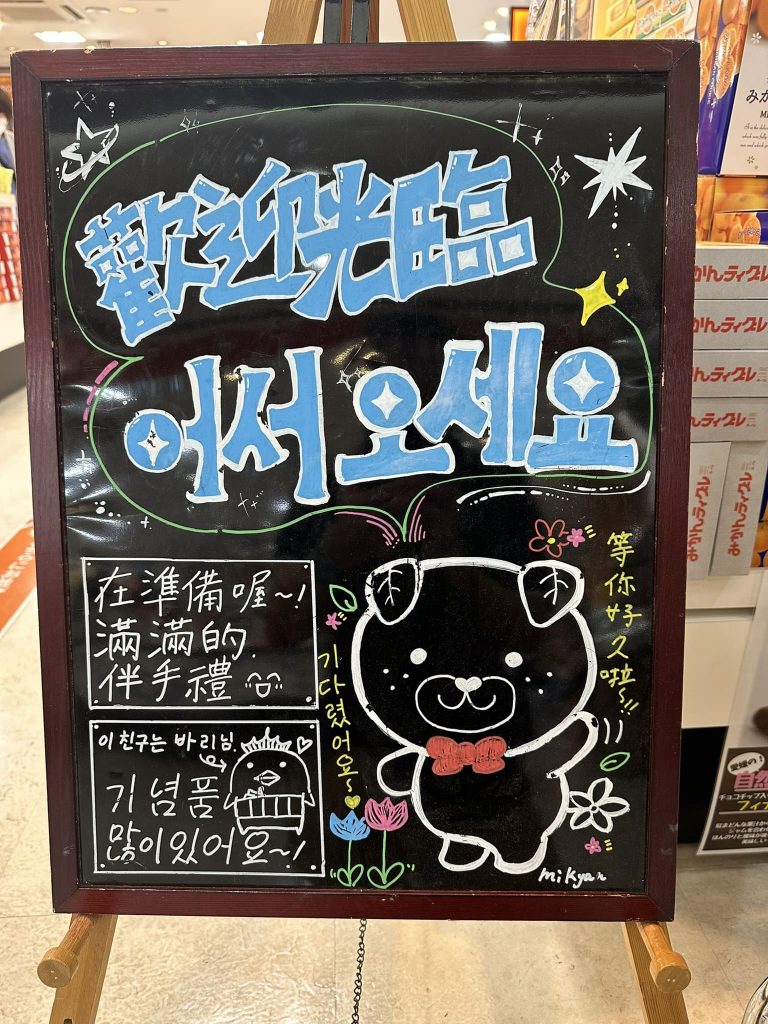 歡迎光臨
어서오세요
在準備喔~!
滿滿的
伴手禮
等你好久啦~!!
기다렸어요~
이 친구는 바리님.
기념품
많이있어요~!
mikyan
みか
みかんティグレ
みかんティグレ
みかんティグレ
みかんティグレ
みかんティグレ
みかんティグレ
愛媛の!
自然
チョコチップ入
フィナ